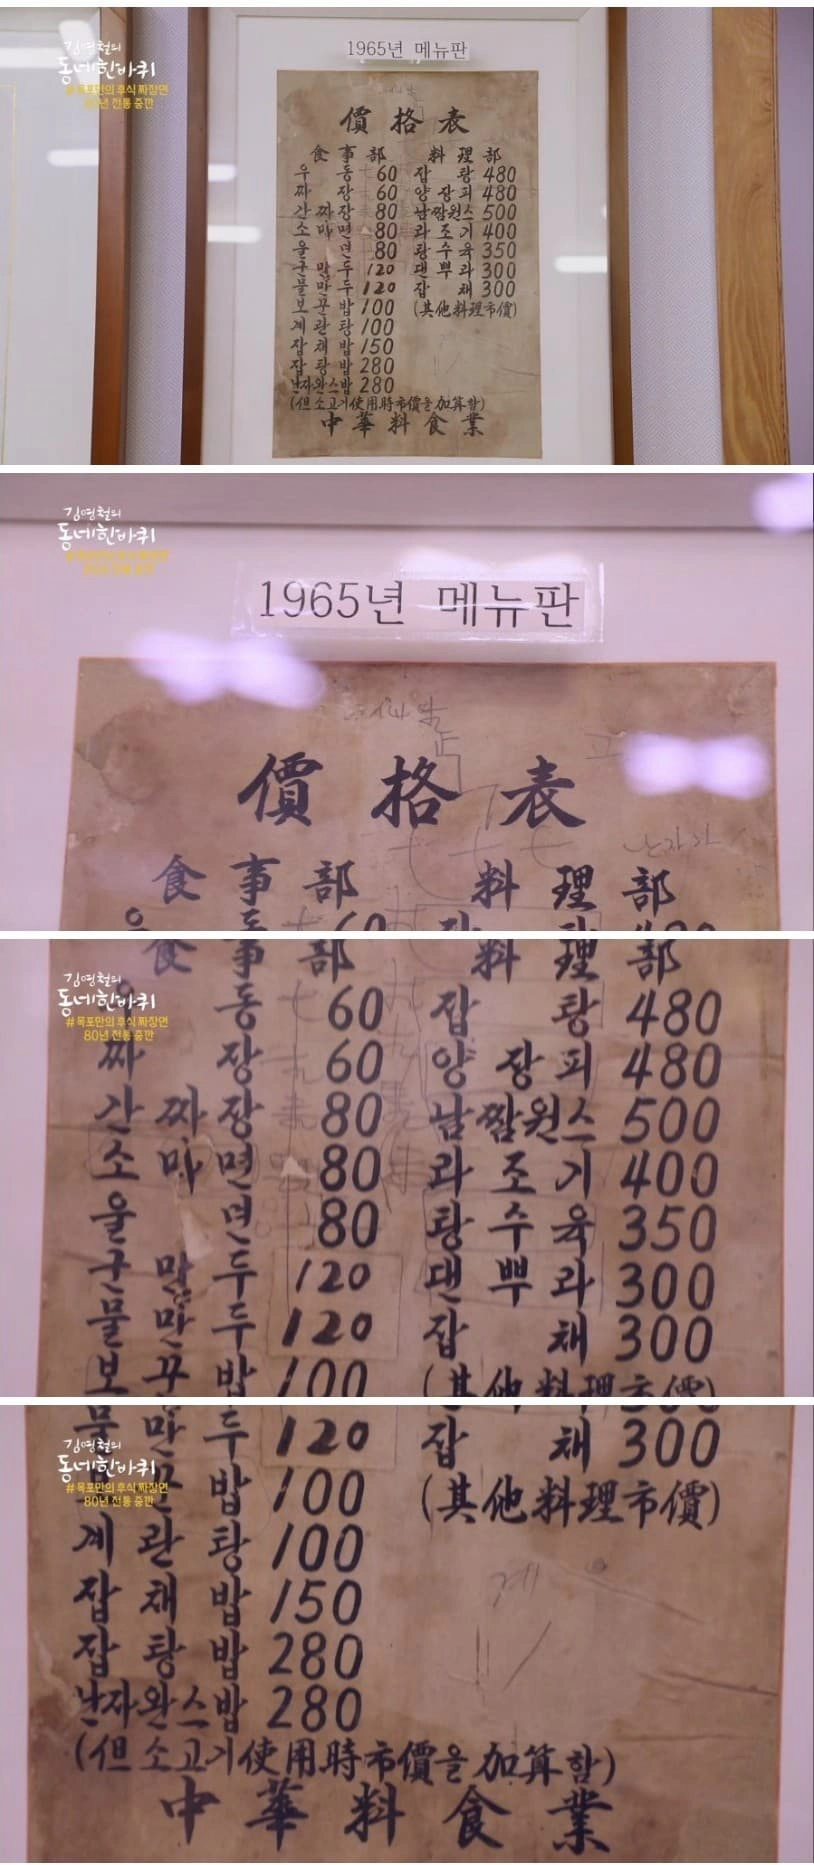 김영철의
동네한바퀴
#목포만의 후식 짜장면
80년 전통 중깐
1965년 메뉴판
價格表
食事部
우동 60
짜장 60
간짜장 80
소마면 80
울면 80
군만두 120
물만두 120
보꾼밥 100
계란탕 100
잡채밥 150
잡탕밥 280
난자완스밥 280
(但소고기使用時市價을加算함)
料理部
잡탕 480
양장피 480
남짬원스 500
라조기 400
탕수육 350
댄뿌라 300
잡채 300
(其他料理市價)
中華料食業
김영철의
동네한바퀴
1965년 메뉴판
價格表
食事部
料理部
김영철의
동네한바퀴
#목포만의 후식 짜장면
80년 전통 중깐
食事部
동 60
짜장 60
간짜장 80
소마면 80
울면 80
군만두 120
물만두 120
보꾼밥 100
料理部
잡탕 480
양장피 480
남짬원스 500
라조기 400
탕수육 350
댄뿌라 300
잡채 300
(其他料理市價)
김영철의
동네한바퀴
#목포만의 후식 짜장면
80년 전통 중깐
만두 120
밥 100
계란탕 100
잡채밥 150
잡탕밥 280
난자완스밥 280
잡채 300
(其他料理市價)
(但소고기使用時市價을加算함)
中華料食業